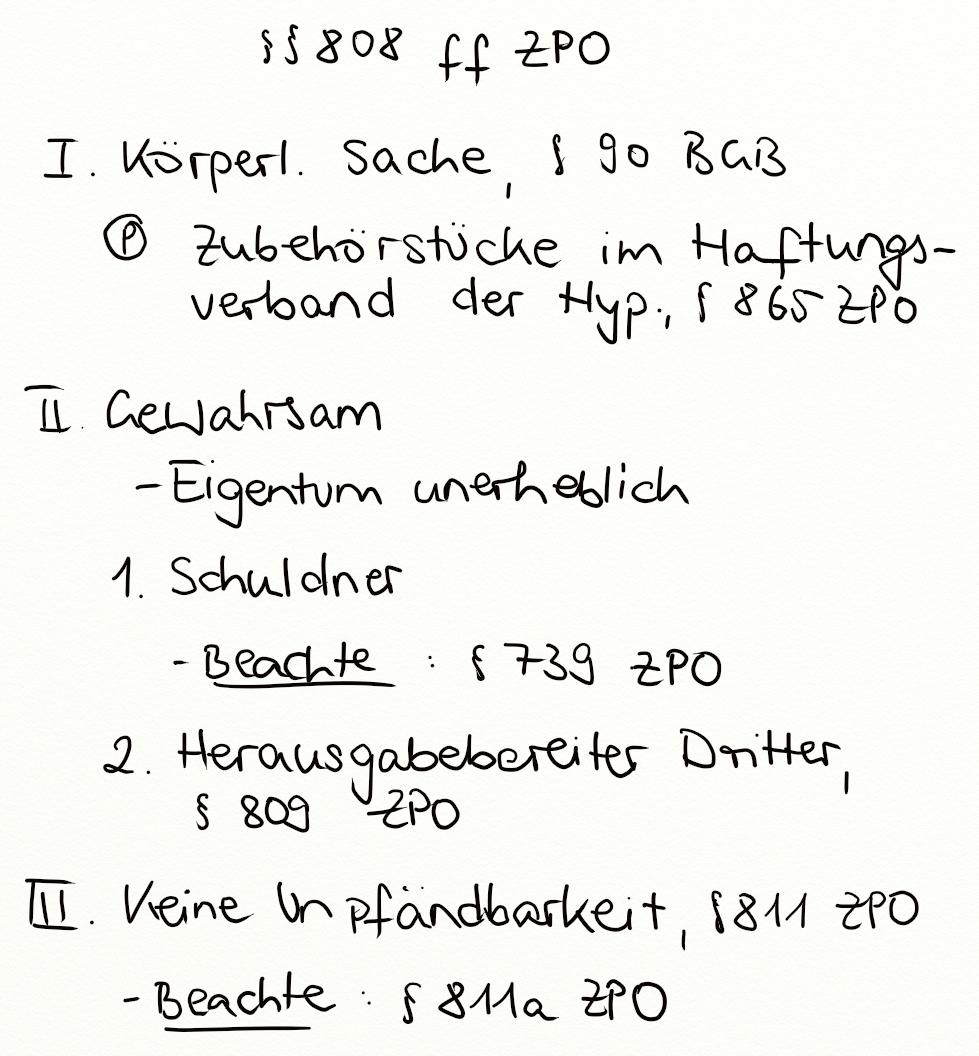 §§ 808 ff ZPO
I. Körperl. Sache, § 90 BGB
Ⓟ Zubehörstücke im Haftungs-
verband der Hyp., § 865 ZPO
II. Gewahrsam
- Eigentum unerheblich
1. Schuldner
- Beachte : § 739 ZPO
2. Herausgabebereiter Dritter,
§ 809 ZPO
III. Keine Unpfändbarkeit, § 811 ZPO
- Beachte : § 811a ZPO